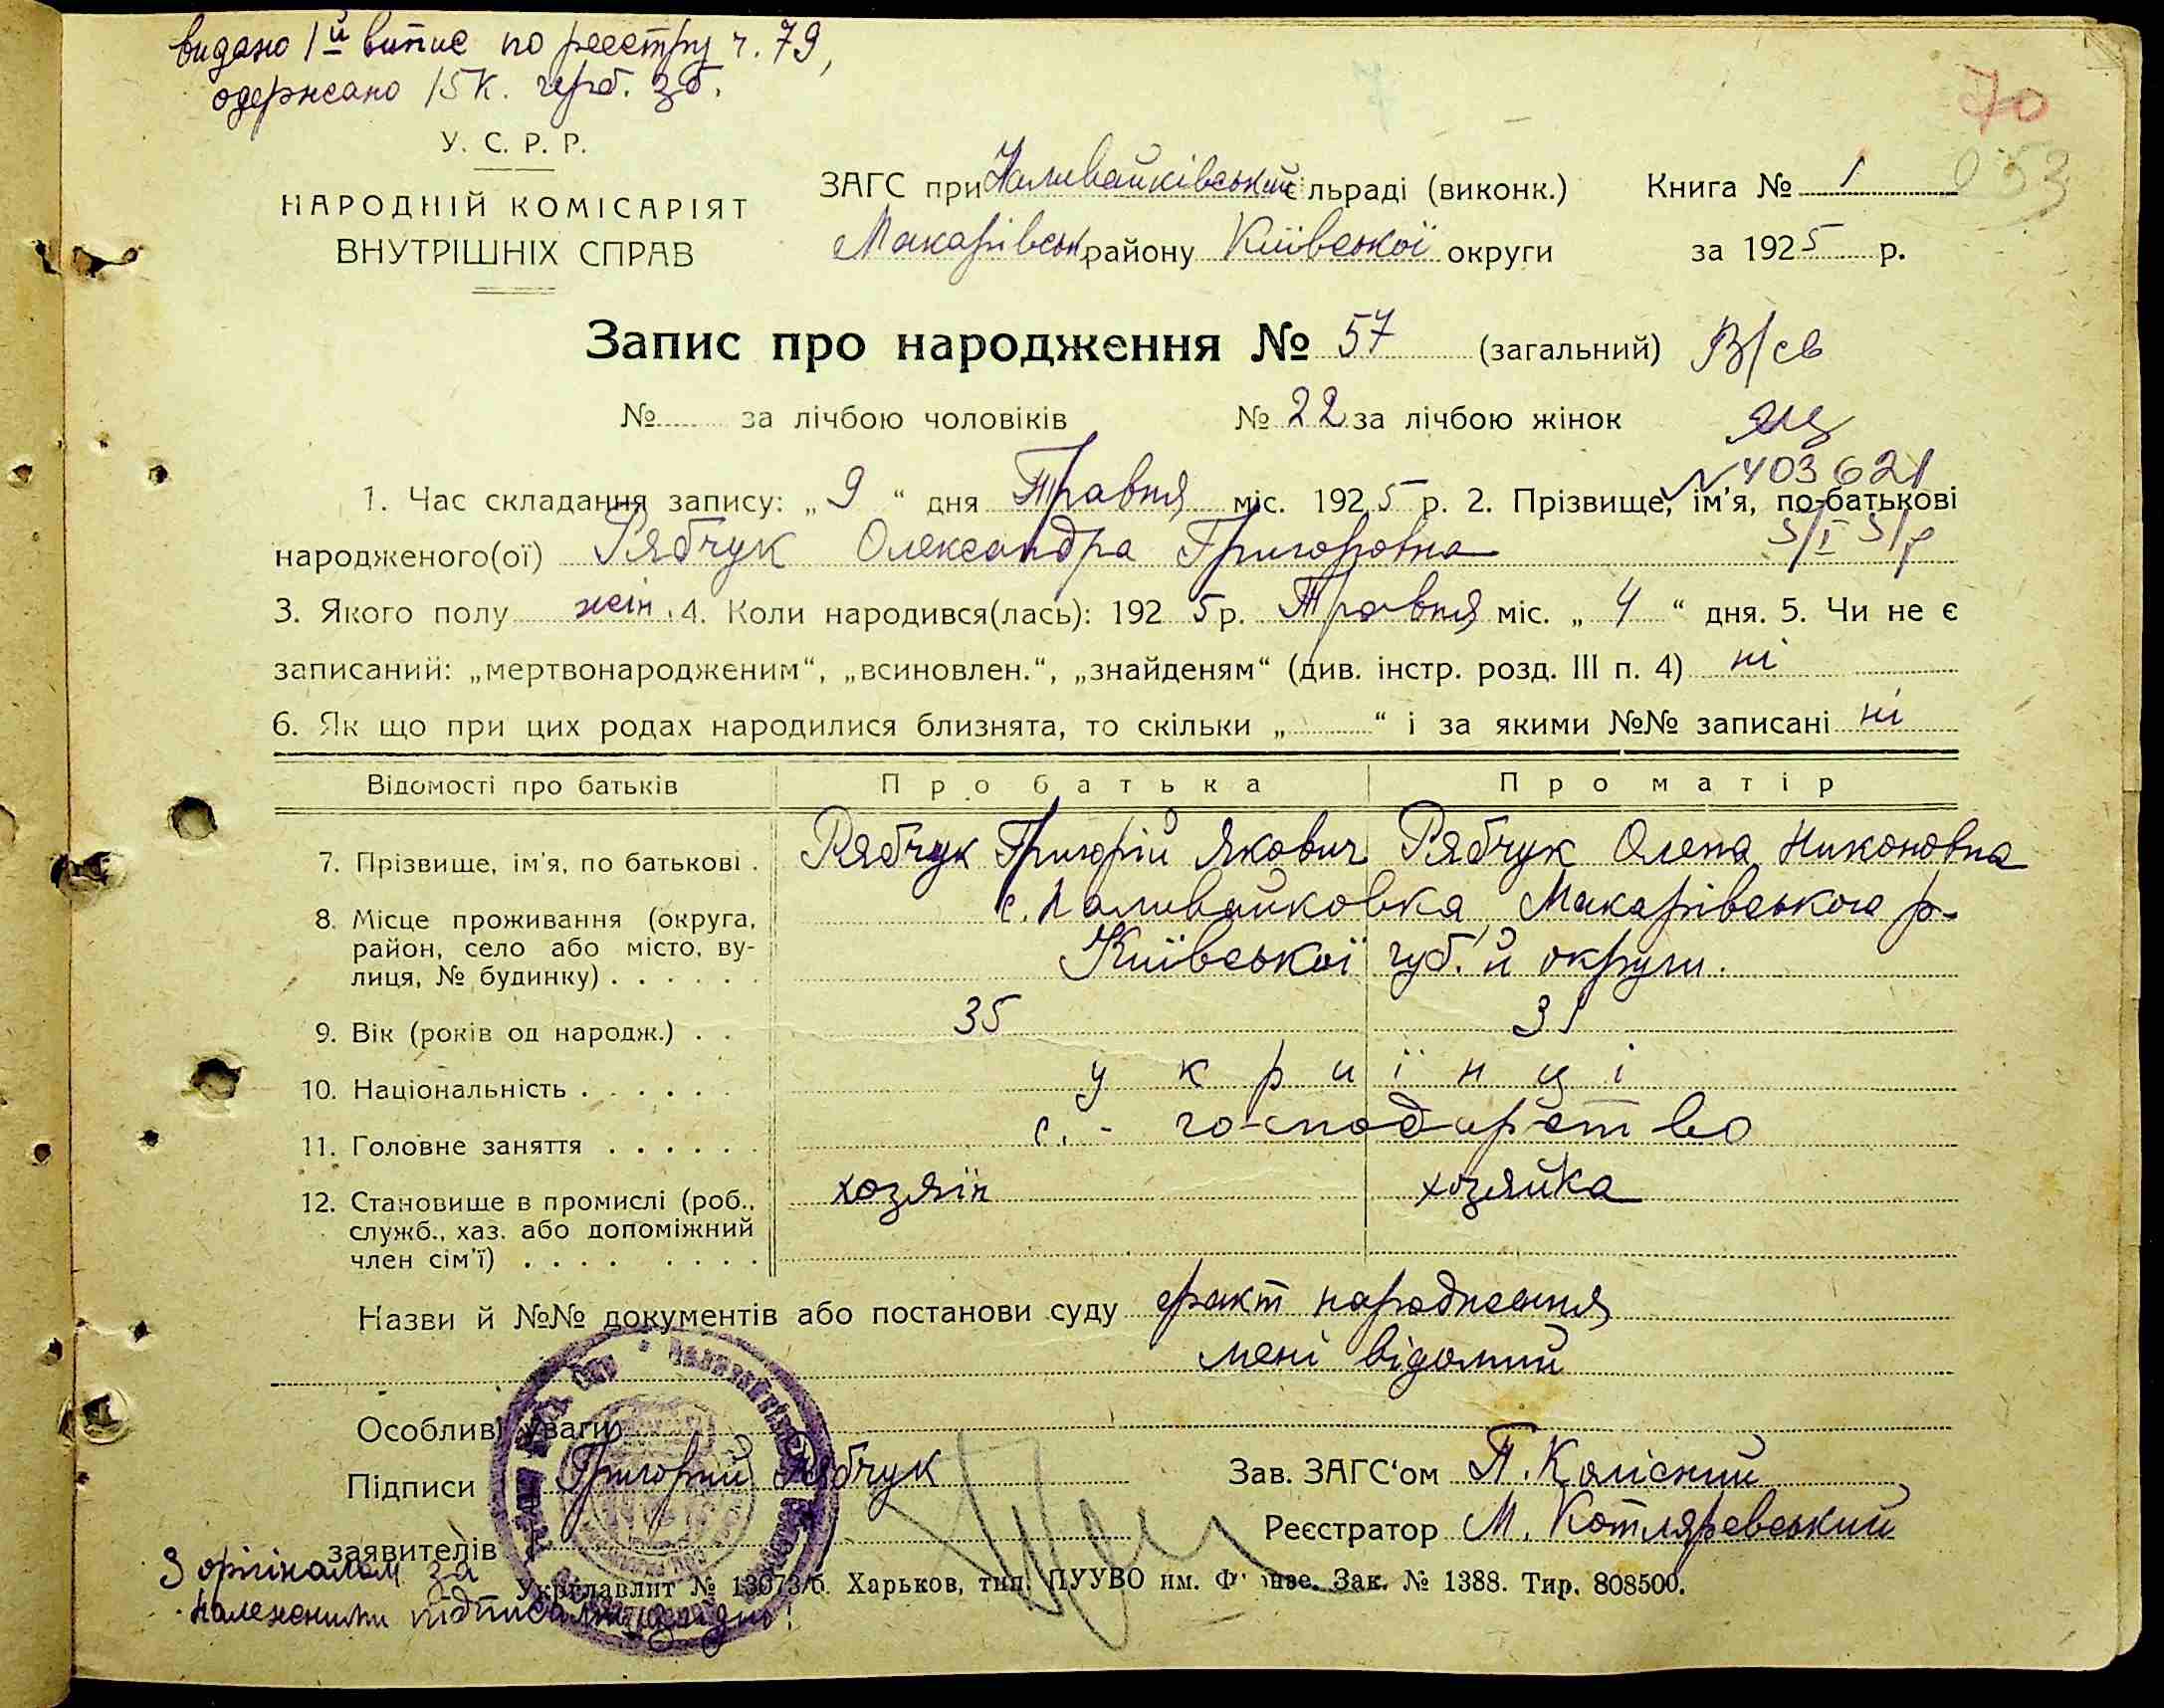 видано 1й випис по реестру ч. 79,
одержано 15к. герб. зб.
70
У. С. Р. Р.
НАРОДНІЙ КОМІСАРІЯТ
ВНУТРІШНІХ СПРАВ
ЗАГС при Наливайківський сільраді (виконк.) Книга № 1
Макарівськ району Київської округи за 1925 р.
253
Запис про народження № 57 (загальний) В/св
№ за лічбою чоловіків № 22 за лічбою жінок ЯЦ
N 403621
1. Час складання запису: „ 9 “ дня Травня міс. 1925 р. 2. Прізвище, ім’я, по-батькові
народженого(ої) Рябчук Олександра Григоровна
3. Якого полу жін. 4. Коли народився(лась): 1925 р. Травня міс. „ 4 “ дня. 5. Чи не є
записаний: „мертвонародженим“, „всиновлен.“, „знайденям“ (див. інстр. розд. III п. 4) ні
6. Як що при цих родах народилися близнята, то скільки „ “ і за якими №№ записані ні
Відомості про батьків Про батька Про матір
7. Прізвище, ім’я, по батькові . Рябчук Григорій Якович Рябчук Олена Никоновна
8. Місце проживання (округа, с. Наливайковка Макарівського р.
район, село або місто, ву-
лиця, № будинку) . . . . . . Київської губ. й округи.
9. Вік (років од народж.) . . 35 31
10. Національність . . . . . . українці
11. Головне заняття . . . . . . с. - господарство
12. Становище в промислі (роб., хозяїн хозяйка
служб., хаз. або допоміжний
член сім’ї) . . . . . . . .
Назви й №№ документів або постанови суду факт народження
мені відомий
Особливі уваги
Підписи Григорий Рябчук Зав. ЗАГС‘ом П. Колісний
заявителів Реєстратор М. Котляревський
З орігіналом за
належними підписами згідно!
Укрглавлит № 13073/б. Харьков, тип. ПУУВО им. Фрунзе. Зак. № 1388. Тир. 808500.